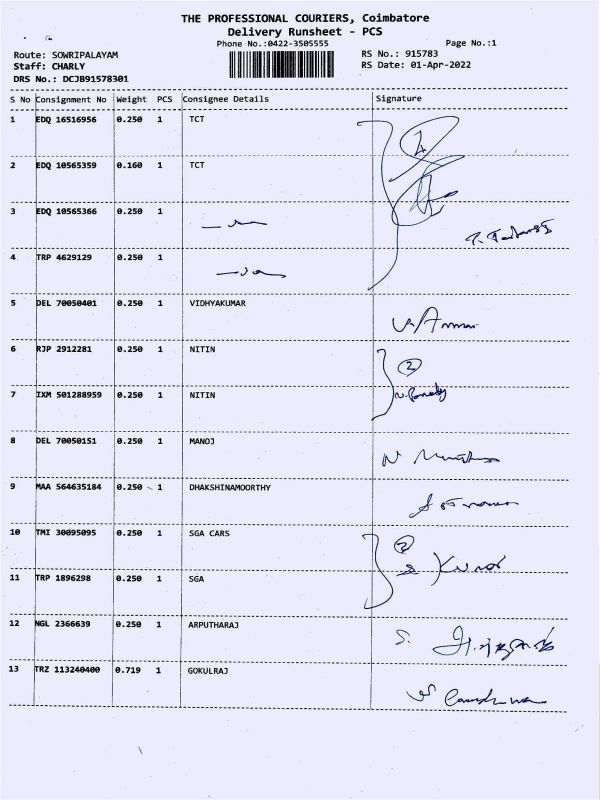 THE PROFESSIONAL COURIERS, Coimbatore
Delivery Runsheet - PCS
Phone No.:0422-3505555
Page No.:1
Route: SOWRIPALAYAM
RS No.: 915783
Staff: CHARLY
RS Date: 01-Apr-2022
DRS No.: DCJB91578301
S No Consignment No Weight PCS Consignee Details Signature
1 EDQ 16516956 0.250 1 TCT
2 EDQ 10565359 0.160 1 TCT
3 EDQ 10565366 0.250 1
4 TRP 4629129 0.250 1
5 DEL 70050401 0.250 1 VIDHYAKUMAR
6 RJP 2912281 0.250 1 NITIN 2
7 IXM 501288959 0.250 1 NITIN
8 DEL 70050151 0.250 1 MANOJ
9 MAA 564635184 0.250 1 DHAKSHINAMOORTHY
10 TMI 30095095 0.250 1 SGA CARS 2
11 TRP 1896298 0.250 1 SGA
12 NGL 2366639 0.250 1 ARPUTHARAJ
13 TRZ 113240400 0.719 1 GOKULRAJ